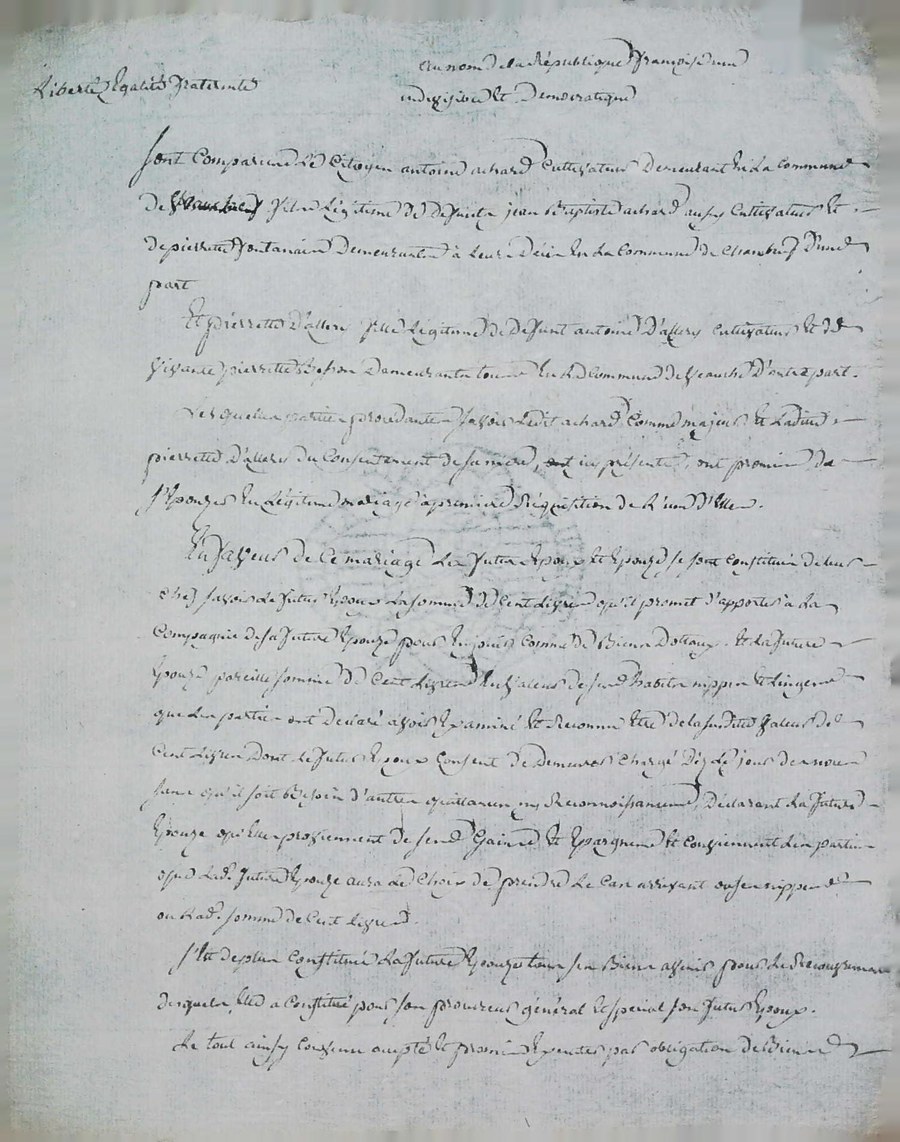 Liberté Egalité fraternité
au nom de la République françoise une
indivisible et Democratique
sont Comparu Le Citoyen antoine achard Cultivateur Demeurant En La Commune
de fils Légitime de Defunts jean Baptiste achard aussy Cultivateur Et
de pierrette fontanain Demeurants à Leurs Décès En La Commune de chambeuf D'une
part
Et pierrette D'allery fille Légitime de Defunt antoine D'allery Cultivateur Et de
vivante pierrette Demeurants tous En La Commune de Veauche D'autre part.
Lesquelles parties procédantes sçavoir Ledit achard Comme majeur Et Ladite
pierrette D'allery du Consentement de sa mere, icy présente, ont promis de
s'Epouzer En Légitime mariage a premiere Réquisition de L'un D'Elle.
En faveur de Ce mariage Les futurs Epoux Et Epouze se sont Constitués de Leur
Chef sçavoir Le futur Epoux La somme de Cent Livres qu'il promet d'apporter à La
Compagnie de sa future Epouze pour En jouir Comme de Biens Dottaux. Et La future
Epouze pareille somme de Cent Livres En valeur de ses habits nippes Et Linges
que Les parties ont Déclaré avoir Examiné Et Reconnu Etre de la susdite valeur de
Cent Livres Dont Le futur Epoux Consent de Demeurer Chargé Dès Le jour des noces
sans qu'il soit bezoin d'autres quittances ny Reconnoissances, Déclarant La future
Epouze qu'Elles proviennent de ses Gains Et Epargnes Et Conviennent Les parties
que Lad. future Epouze aura Le Choix de prendre Le Cas arrivant ou ses nippes
ou Lad. somme de Cent Livres.
s'Est de plus Constitué La future Epouze tous ses Biens avenir pour Le Recouvrement
desquels Elle a Constitué pour son procureur général Et special son futur Epoux.
Le tout ainsy Convenu accepté Et promis Exécuter par obligation de Biens